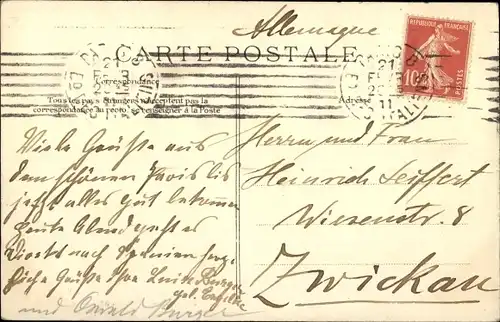 Allemagne
CARTE POSTALE
Correspondance
Tous les pays étrangers n'acceptent pas la
correspondance au recto, se renseigner à la Poste
Adresse
REPUBLIQUE FRANÇAISE
10
POSTES
PARIS
21
11
Viele Grüße aus
dem schönen Paris bis
jetzt alles gut bekommen
heute Abend geht es
nach Spanien
Grüße Luise Burger
und Oswald Burger
Herrn und Frau
Heinrich Seiffert
Wiesenstr. 8
Zwickau